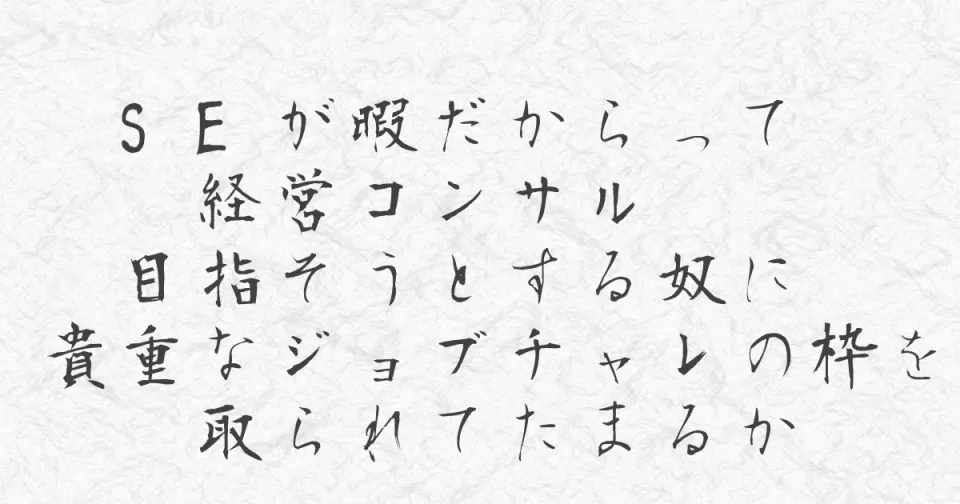 SEが暇だからって
経営コンサル
目指そうとする奴に
貴重なジョブチャレの枠を
取られてたまるか